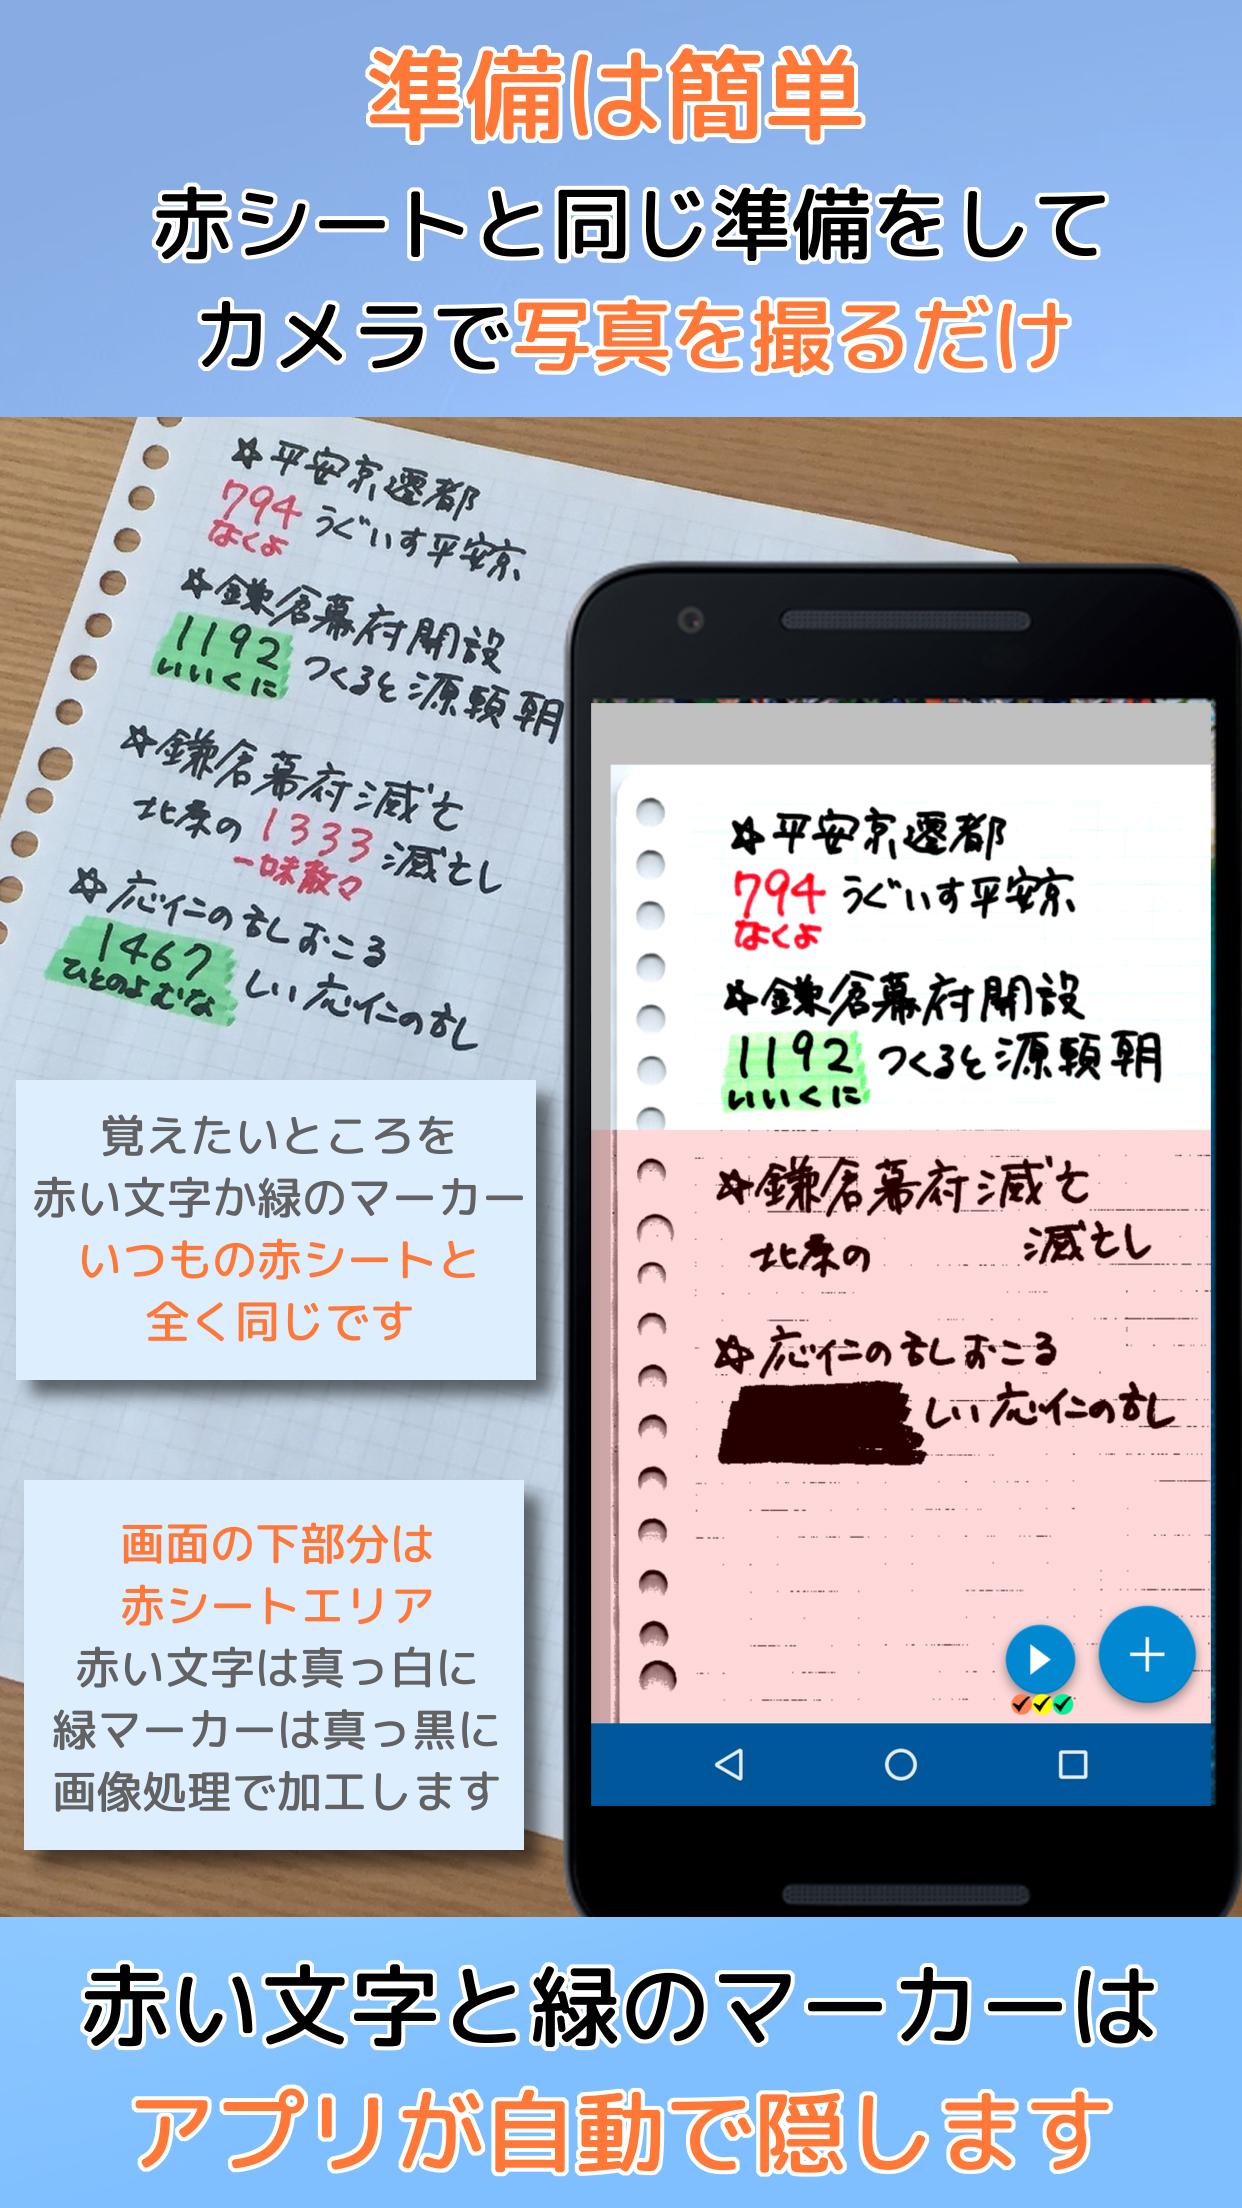 準備は簡単
赤シートと同じ準備をして
カメラで写真を撮るだけ
☆平安京遷都
794 うぐいす平安京
なくよ
☆鎌倉幕府開設
1192 つくると源頼朝
いいくに
☆鎌倉幕府滅亡
北条の1333滅亡し
一味散々
☆応仁の乱おこる
1467 しい応仁の乱
ひとのよむな
☆平安京遷都
794 うぐいす平安京
なくよ
☆鎌倉幕府開設
1192 つくると源頼朝
いいくに
☆鎌倉幕府滅亡
北条の 滅亡し
☆応仁の乱おこる
しい応仁の乱
覚えたいところを
赤い文字か緑のマーカー
いつもの赤シートと
全く同じです
画面の下部分は
赤シートエリア
赤い文字は真っ白に
緑マーカーは真っ黒に
画像処理で加工します
赤い文字と緑のマーカーは
アプリが自動で隠します